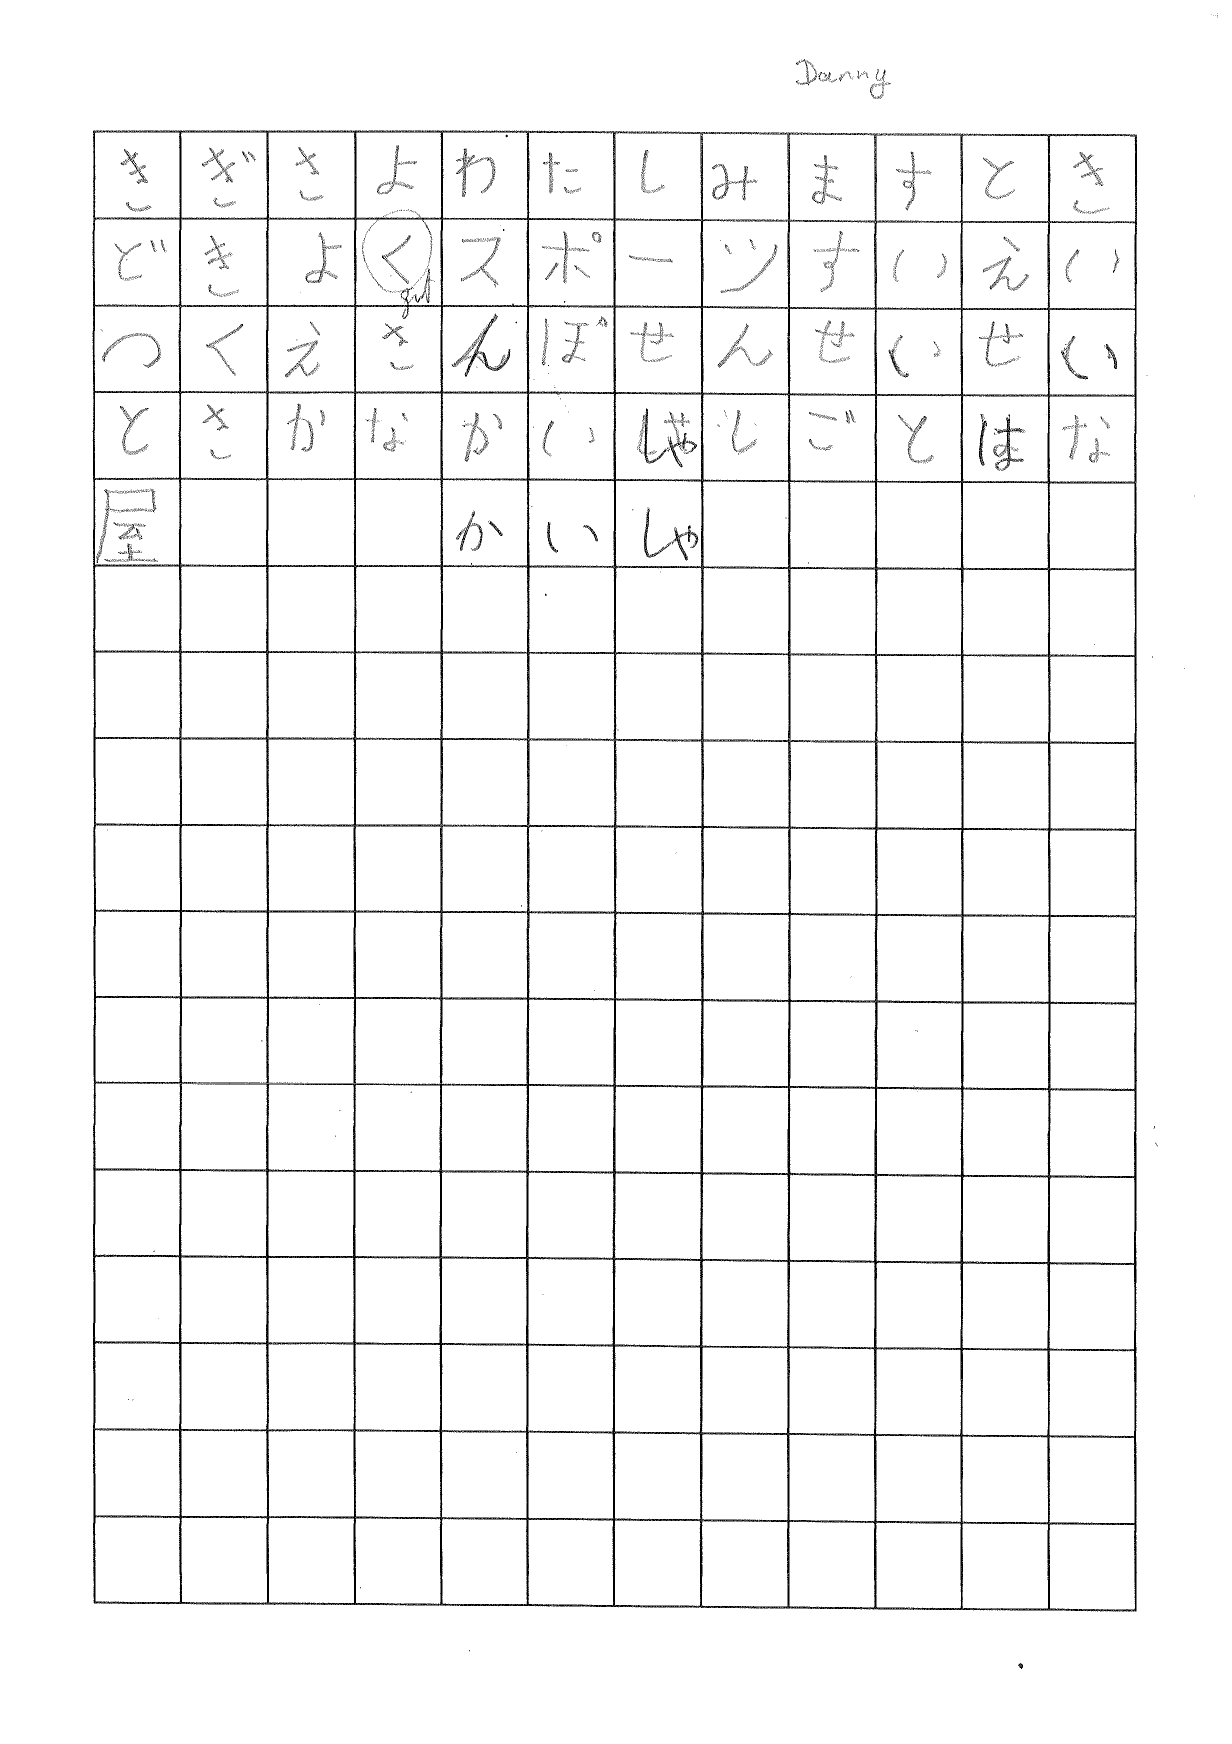 Danny
きぎさよわたしみますとき
どきよくスポーツすいえい
gut
つくえさんぽせんせいせい
ときかなかいしゃしごとはな
屋 かいしゃ